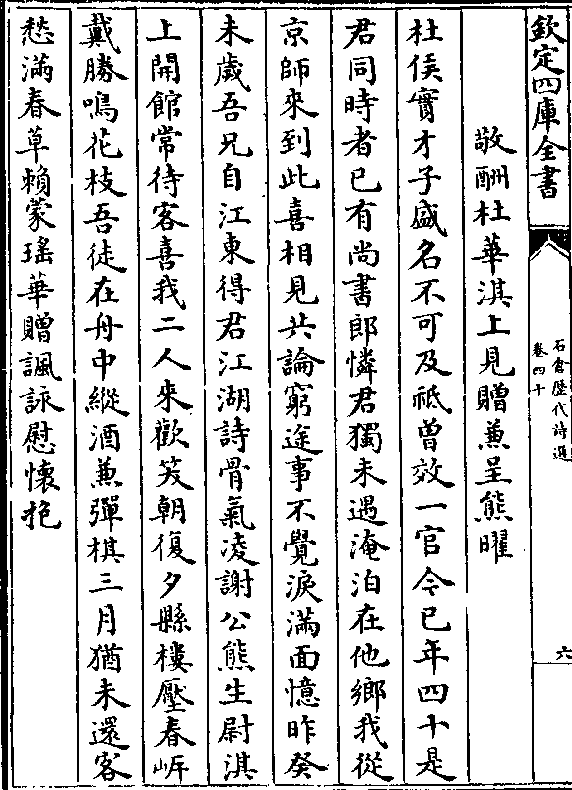 欽定四庫全書
石倉歷代詩選
卷四十
六
敬酬杜華淇上見贈兼呈熊曜
杜侯實才子盛名不可及祗曾效一官今已年四十是
君同時者已有尚書郎憐君獨未遇淹泊在他鄉我從
京師來到此喜相見共論窮途事不覺淚滿面憶昨癸
未歲吾兄自江東得君江湖詩骨氣凌謝公熊生尉淇
上開館常待客喜我二人來歡笑朝復夕縣樓壓春岍
戴勝鳴花枝吾徒在舟中縱酒兼彈棋三月猶未還客
愁滿春草賴蒙瑤華贈諷詠慰懷抱